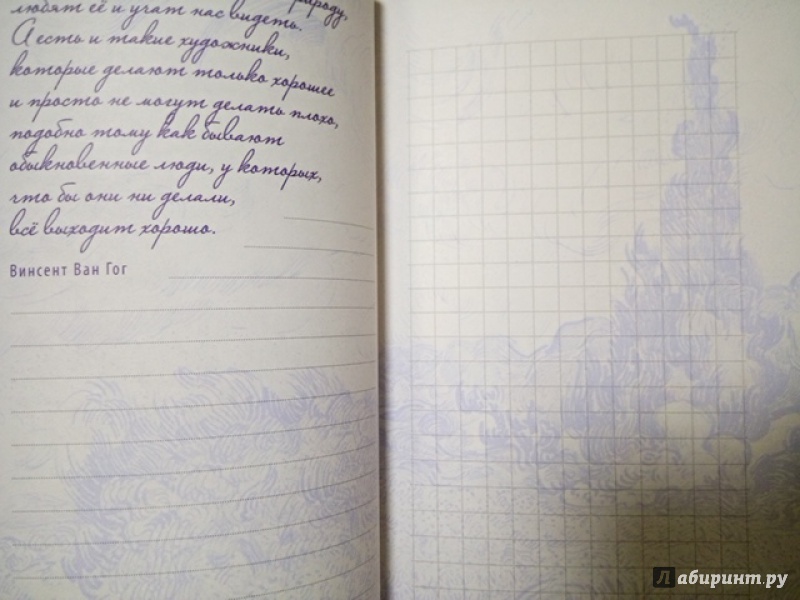 природу,
любят её и учат нас видеть.
А есть и такие художники,
которые делают только хорошее
и просто не могут делать плохо,
подобно тому как бывают
обыкновенные люди, у которых,
что бы они ни делали,
всё выходит хорошо.
Винсент Ван Гог
Лабиринт.ру